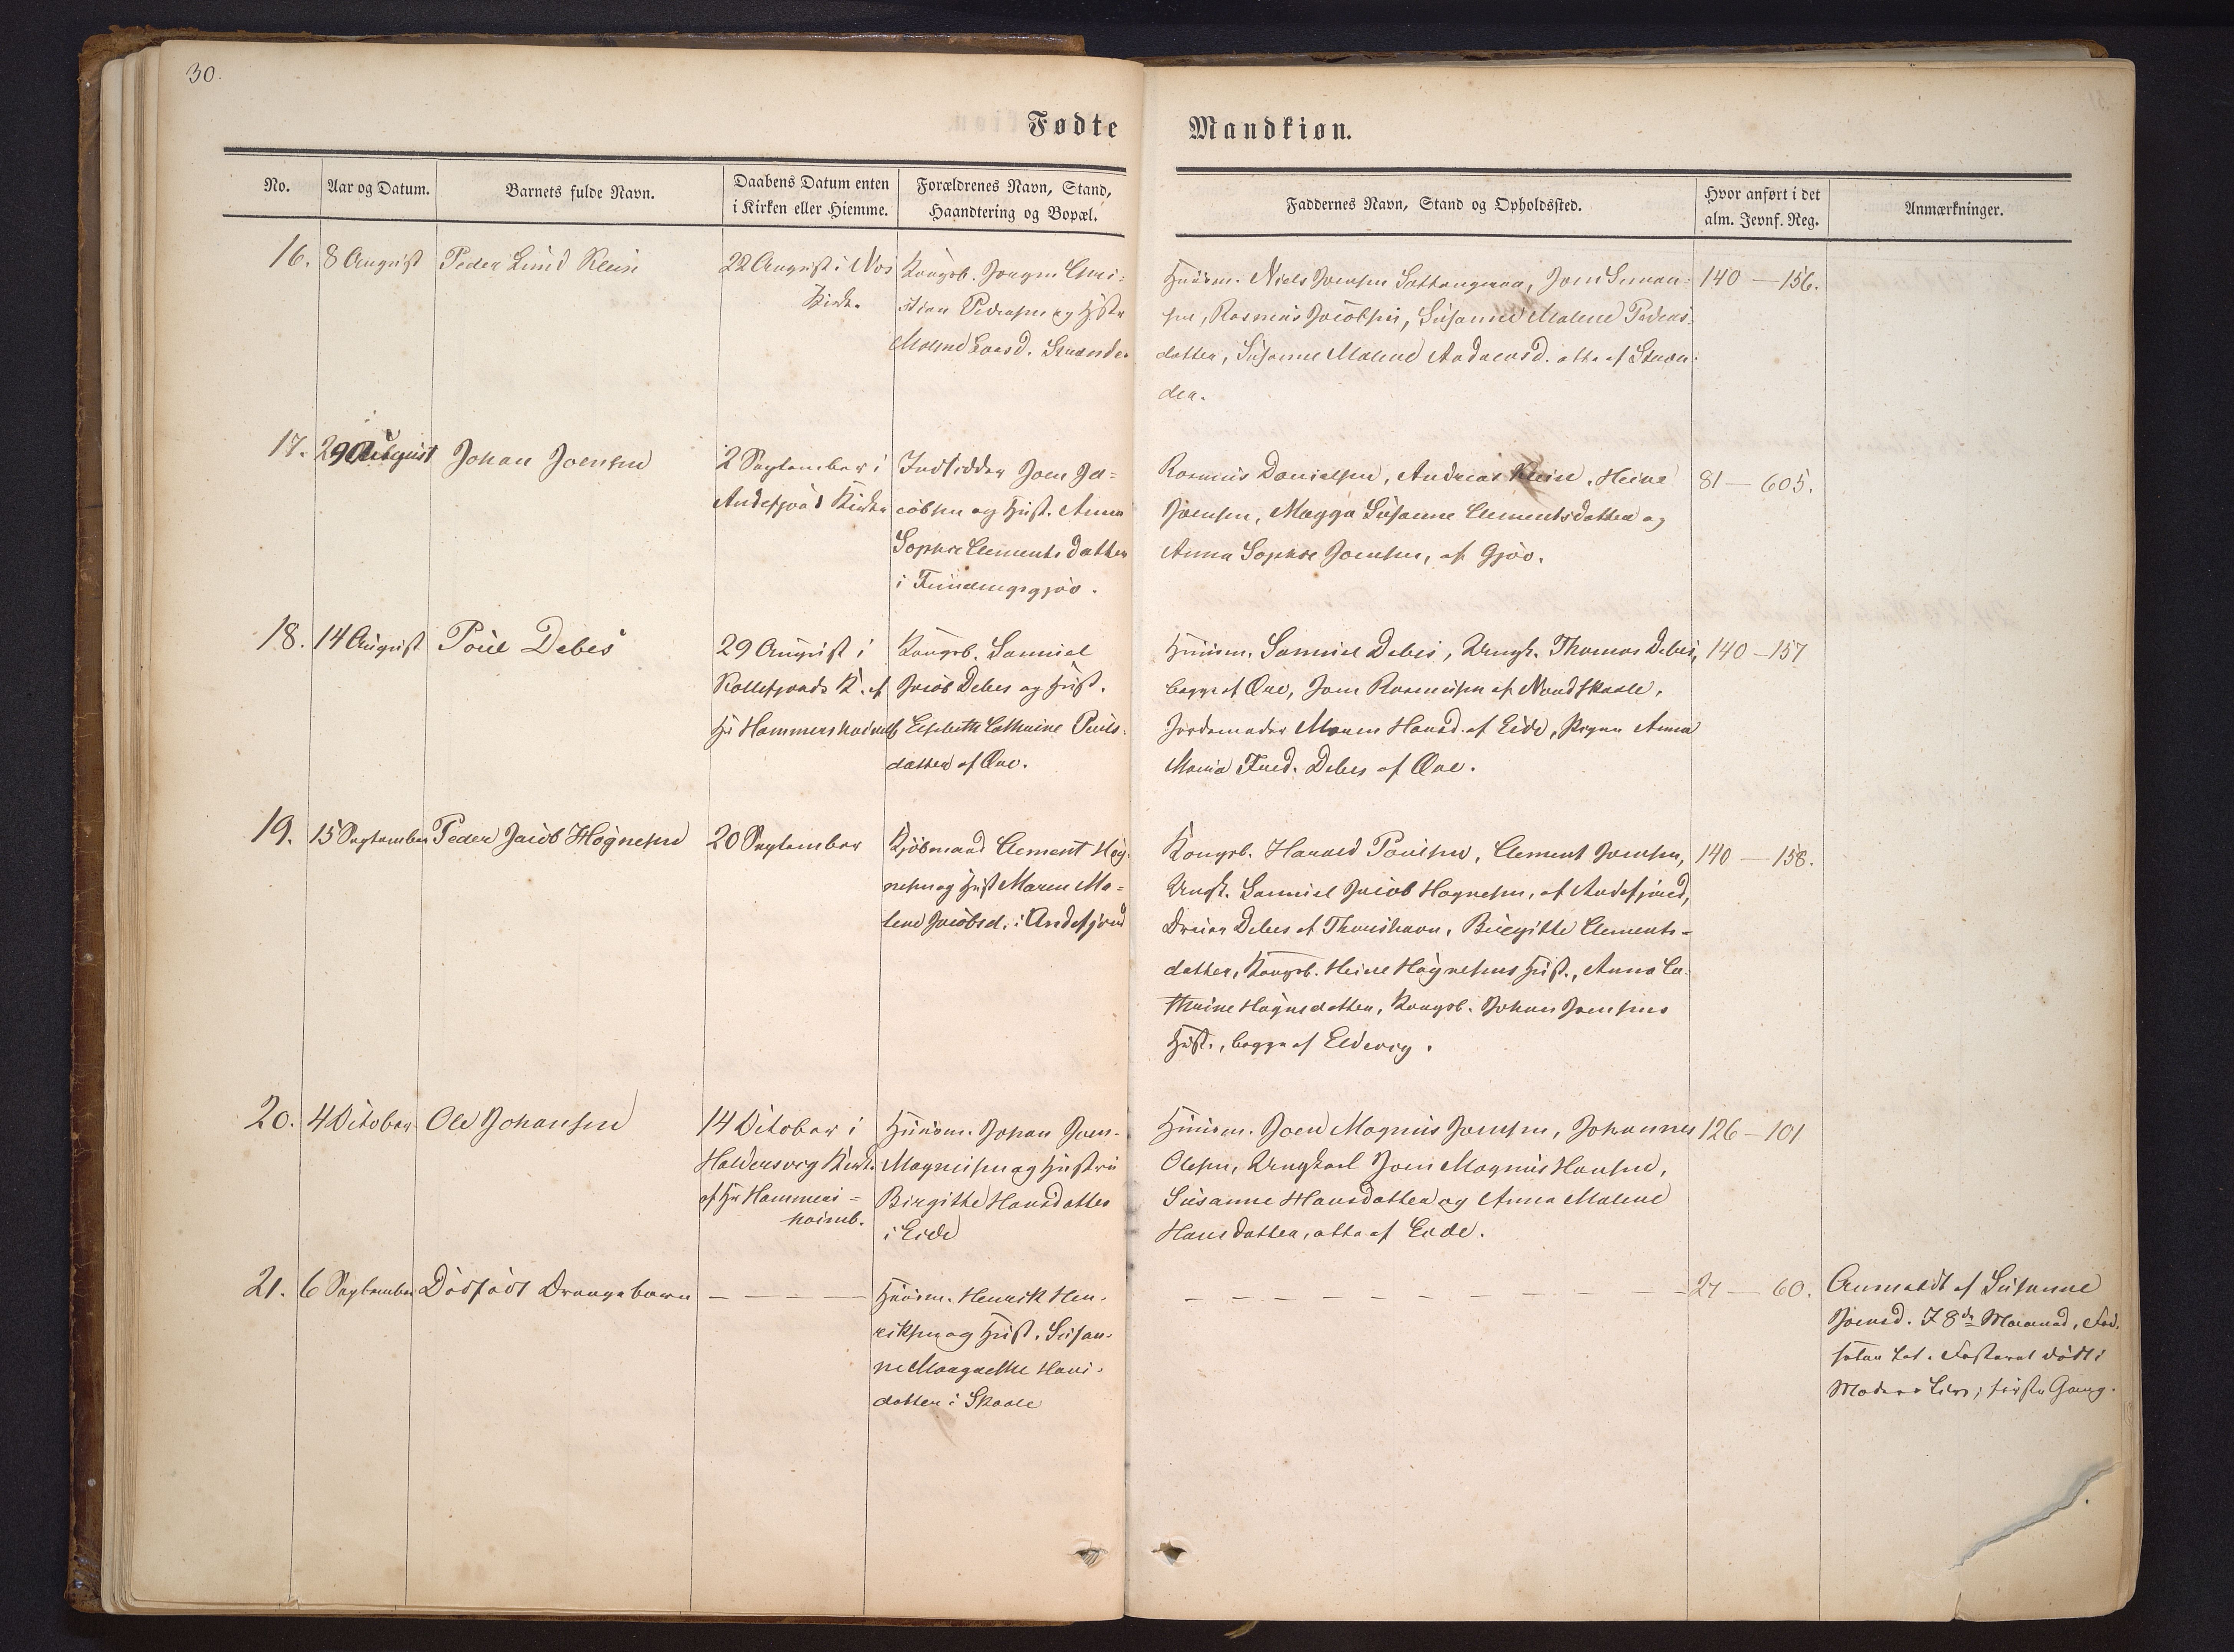 30.
Fødte Mandkiøn.
No.
Aar og Datum.
Barnets fulde Navn.
Daabens Datum enten
i Kirken eller Hiemme.
Forældrenes Navn, Stand,
Haandtering og Bopæl.
Faddernes Navn, Stand og Opholdssted.
Hvor anført i det
alm. Jevnf. Reg.
Anmærkninger.
16.
8 August
Peder Lund Klein
22 August i
Kirke
Kongsb. Joegen Chri-
stian Pedersen og Hustr
Malene Laasd. Strender
Huusm. Niels Joensen Sottengaea, Joen Simon-
sen, Rasmus Jacobsen, Susanne Malene Peders-
datter, Susanne Malene Andreasd. alle af Stræn-
der.
140 — 156.
17.
29 August
Johan Joensen
2 September i
Andefjord Kirke
Indsidder Joen Ja-
cobsen og Hust. Anna
Sophie Clements datter
i Fundingsgjov.
Rasmus Danielsen, Andreas Klein, Heine
Joensen, Magga Susanne Clementsdatter og
Anna Sophie Joensen, af Gjov.
81 — 605.
18.
14 August
Poul Debes
29 August i
Kollefjords K. af
Hr Hammershaimb
Kongsb. Samuel
Jacob Debes og Hust.
Elsebeth Cathrine Pouls-
datter af Øre.
Huusm. Samuel Debes, Ungk. Thomas Debes,
begge af Øre, Joen Rasmusen af Nordskaale,
Jordemoder Maren Hansd. af Eide, Pigen Anna
Maria Fred. Debes af Øre.
140 — 157
19.
15 September
Peder Jacob Høgnesen
20 September
Kjøbmand Clement Høg-
nesen og Hust Maren Ma-
lene Jacobsd. i Andefjord
Kongsb. Harald Poulsen, Clement Joensen,
Ungk. Samuel Jacob Høgnesen, af Andefjord,
Dreier Debes af Thorshavn, Birgitte Clements-
datter, Kongsb. Heine Høgnesens Hust., Anna Ca-
thrine Høgnedatter, Kongsb. Johan Joensens
Hust., begge af Eldevig.
140 — 158.
20.
4 October
Ole Johansen
14 October i
Haldersvig Kirke
af Hr Hammers-
haimb.
Huusm. Johan Joen-
Magnusen og Hustru
Birgithe Hansdatter
i Eide
Huusm. Joen Magnus Joensen, Johannes
Olesen, Ungkarl Joen Magnus Hansen,
Susanne Hansdatter og Anna Malene
Hansdatter, alle af Eide.
126 — 101
21.
6 September
Dødfødt Drengebarn
— — — —
Huusm. Henrik Hen-
riksen og Hust. Susan-
ne Margrethe Hans-
datter i Skaale
— — — — — — — — — — —
27 — 60.
Anmeldt af Susanne
Joensd. I 8de Maaned, Fød-
selen let. Fosteret dødt i
Moders Liv; første Gang.